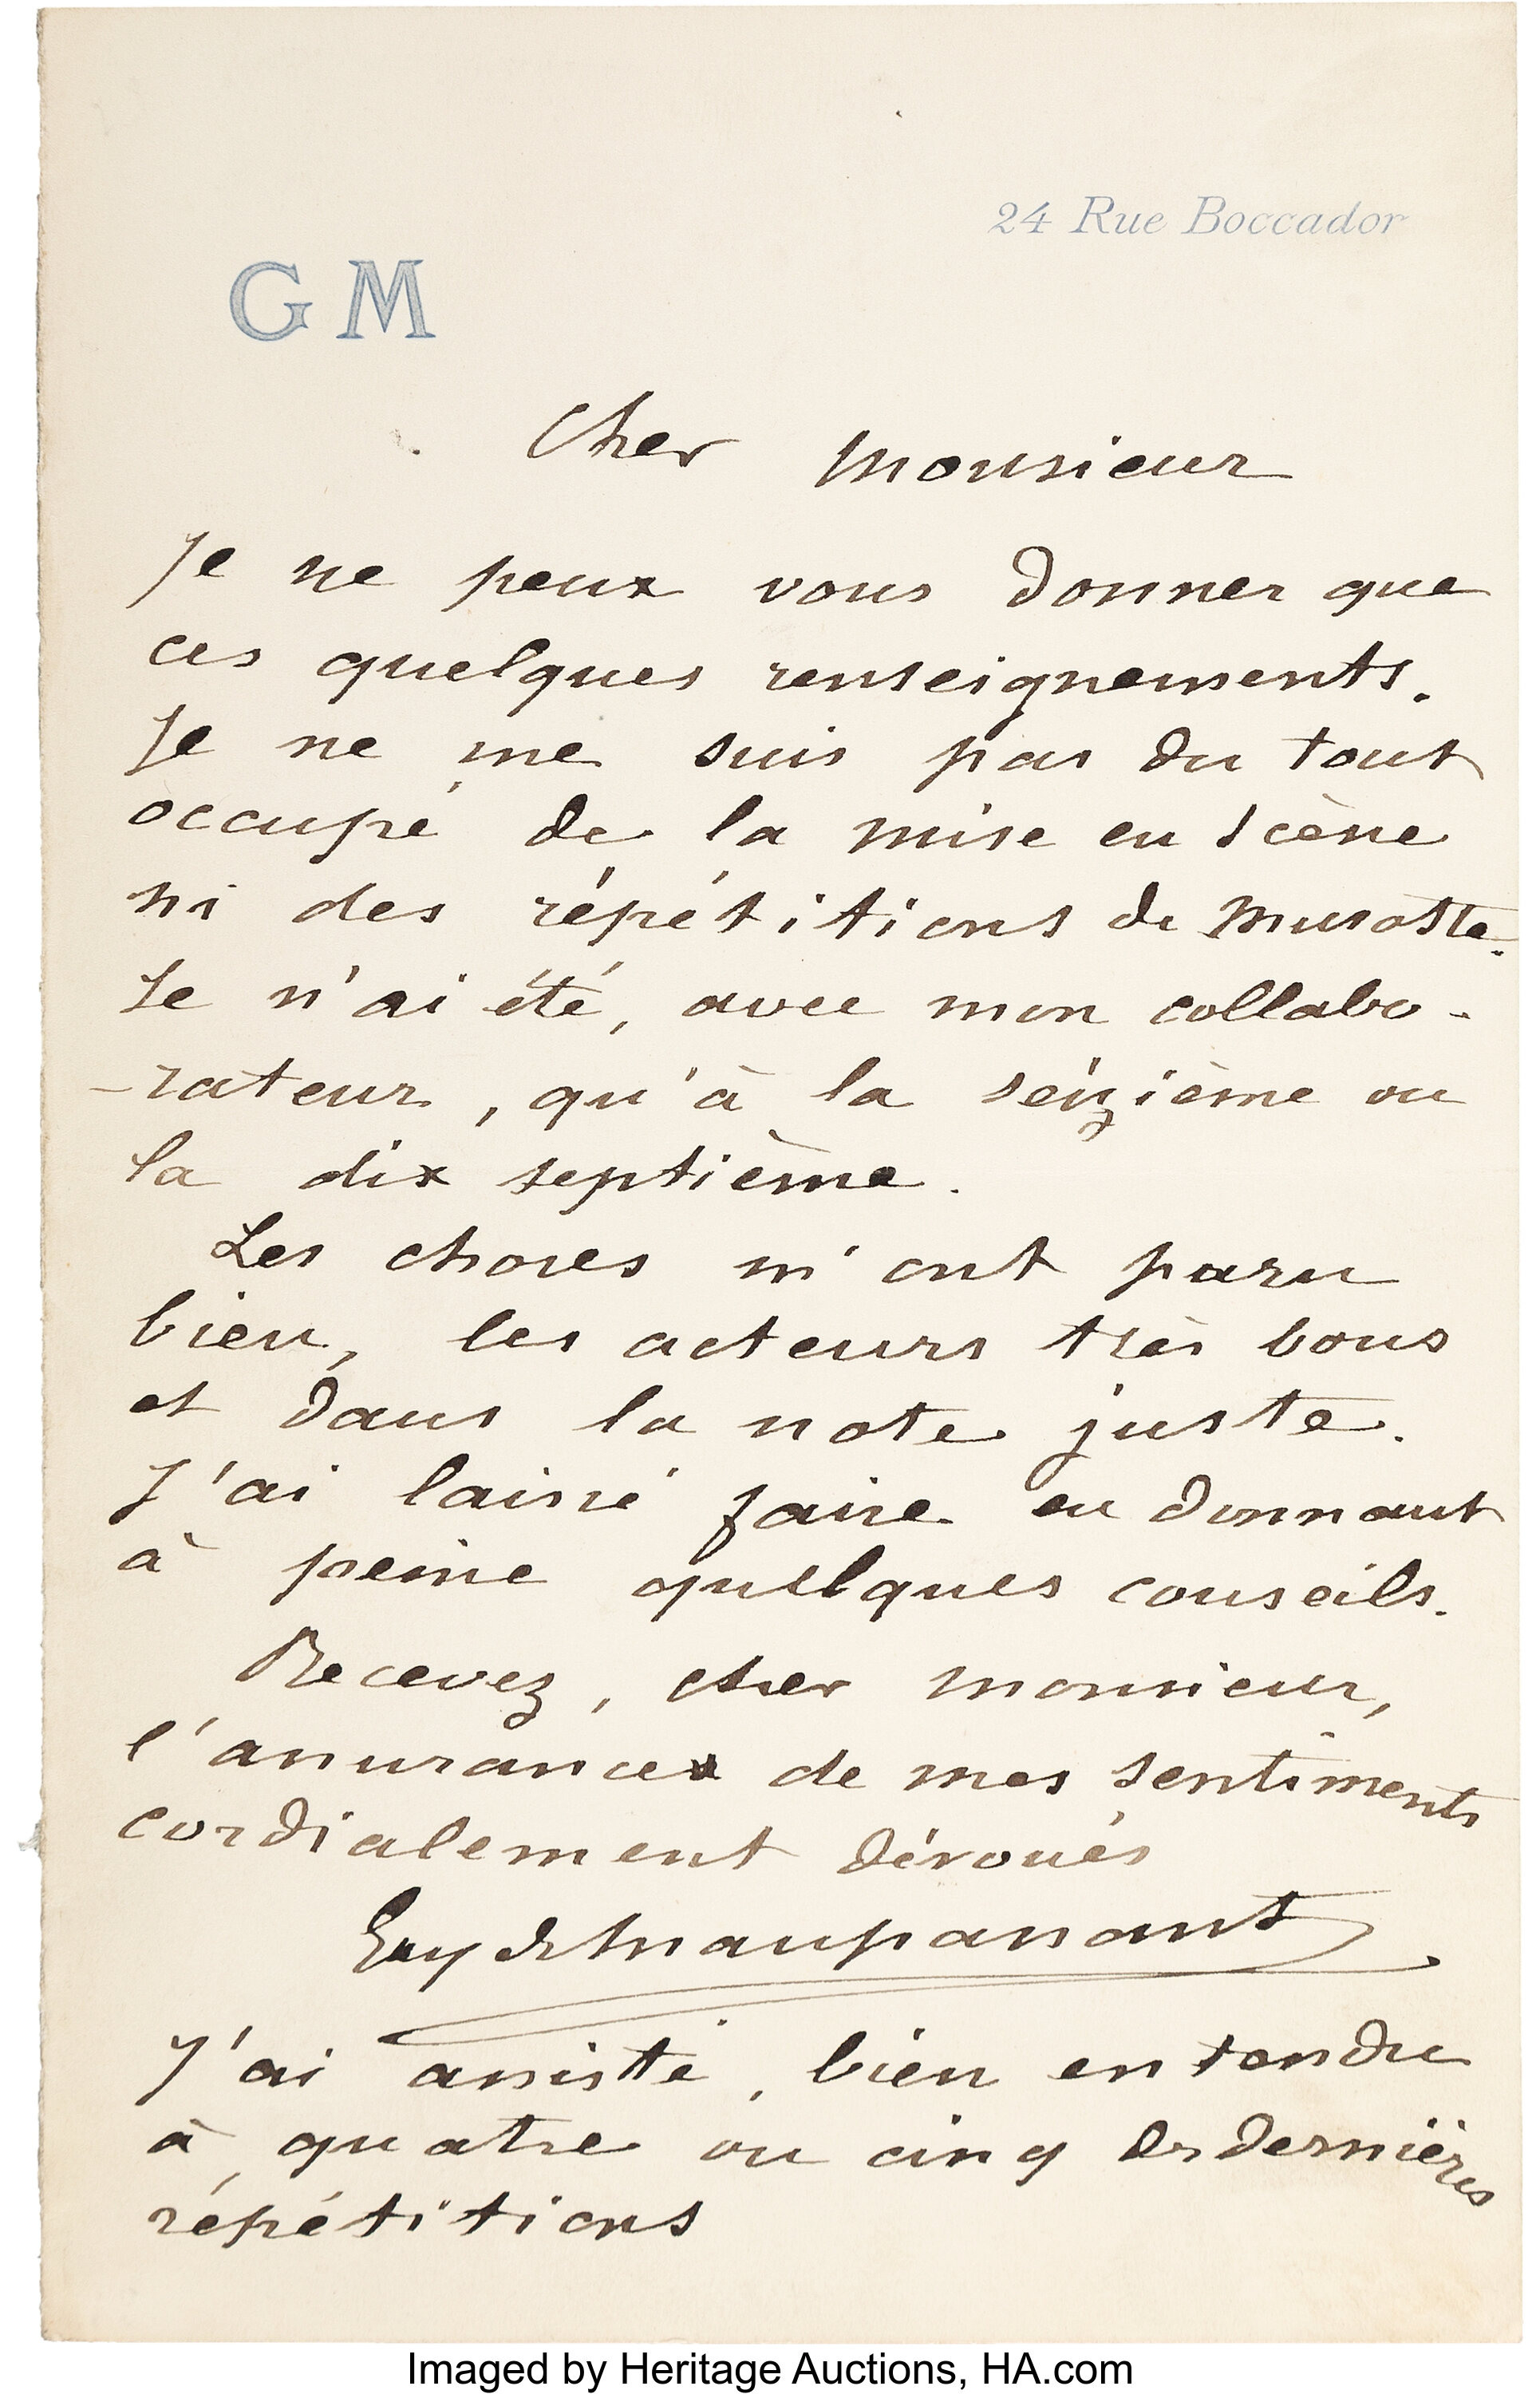 24 Rue Boccador
G M
Cher Monsieur
Je ne peux vous donner que
ces quelques renseignements.
Je ne me suis pas du tout
occupé de la mise en scène
ni des répétitions de Musotte.
Je n'ai été, avec mon collabo-
-rateur, qu'à la seizième ou
la dix septième.
Les choses m'ont paru
bien, les acteurs très bons
et dans la note juste.
J'ai laissé faire en donnant
à peine quelques conseils.
Recevez, cher monsieur,
l'assurance de mes sentiments
cordialement dévoués
Guy de Maupassant
J'ai assisté, bien entendu
à quatre ou cinq des dernières
répétitions
Imaged by Heritage Auctions, HA.com